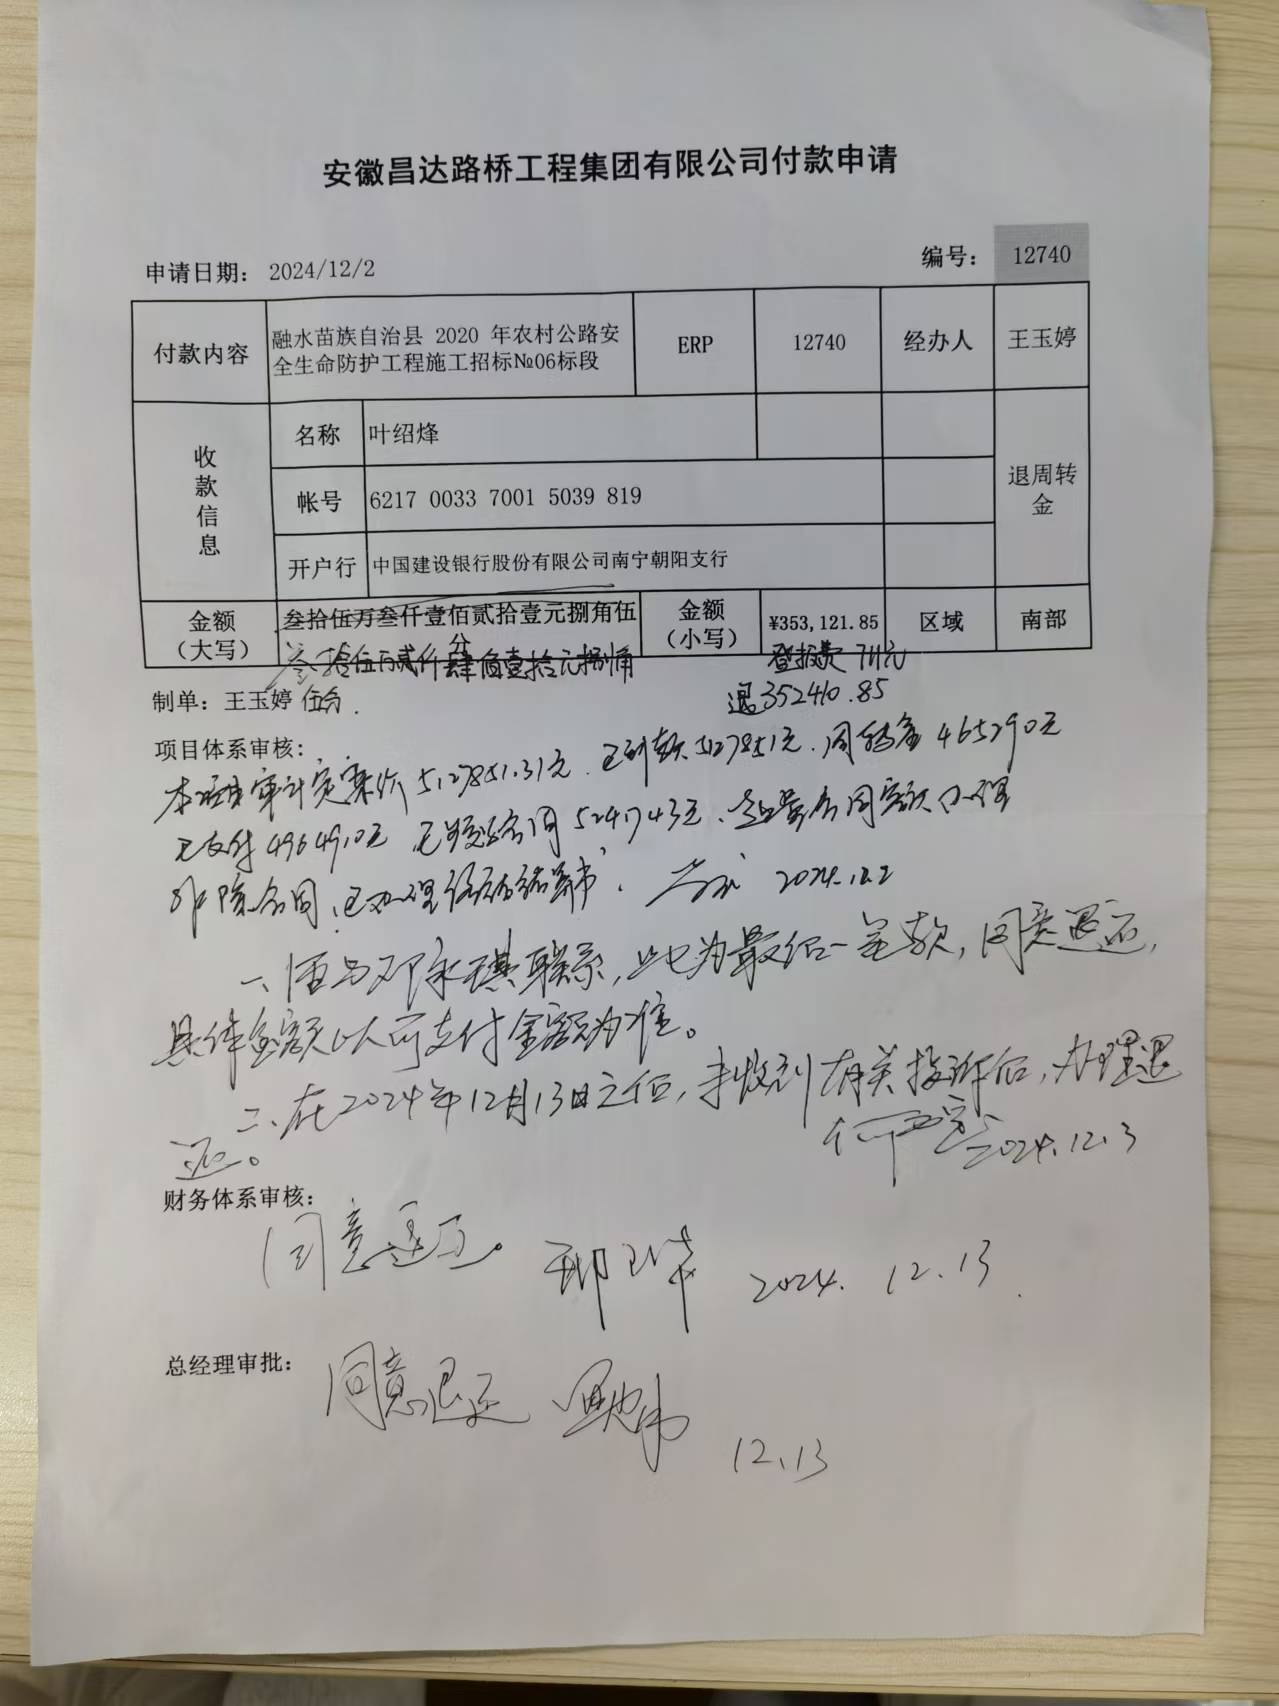 安徽昌达路桥工程集团有限公司付款申请
申请日期： 2024/12/2
编号： 12740
付款内容
融水苗族自治县 2020 年农村公路安
全生命防护工程施工招标№06标段
ERP
12740
经办人
王玉婷
收款信息
名称
叶绍烽
帐号
6217 0033 7001 5039 819
开户行
中国建设银行股份有限公司南宁朝阳支行
退周转
金
金额
（大写）
叁拾伍万叁仟壹佰贰拾壹元捌角伍
分
叁拾伍万贰仟肆佰壹拾元捌角
伍分
金额
（小写）
¥353,121.85
区域
南部
登报费 711元
退352410.85
制单：王玉婷
项目体系审核：
本项目审计定案价5127851.31元、已到款5127851元、周转金465290元
已支付4964910元 合同5241743元、合同额办理
合同、已办理 2024.12.2
一、联系，此为最后一笔款，同意退还，
具体金额以可支付金额为准。
二、在2024年12月13日之后，未收到有关投诉后，办理退
还。
2024.12.3
财务体系审核：
同意退还。
2024. 12.13
总经理审批：
同意退还
12.13